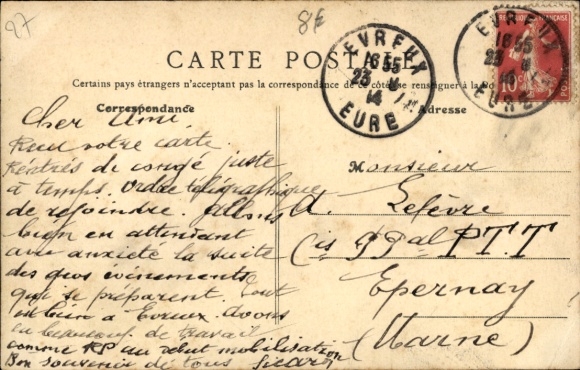 27
8€
CARTE POSTALE
Certains pays étrangers n'acceptant pas la correspondance de ce côté se renseigner à la Po
Correspondance
Adresse
EVREUX
16 55
23
14
EURE
EVREUX
16 55
23
EURE
RÉPUBLIQUE FRANÇAISE
10
POSTES
Cher Ami.
Reçu votre carte.
Rentrés de congé juste
à temps. Ordre télégraphique
de rejoindre. Allons
bien en attendant
avec anxiété la suite
des gros évènements
qui se préparent. Tout
va bien à Evreux. Avons
eu beaucoup de travail
comme RP au début mobilisation
Bon souvenir de tous Sicard
Monsieur
A. Lefèvre
Cis Pal P.T.T
Epernay
(Marne)